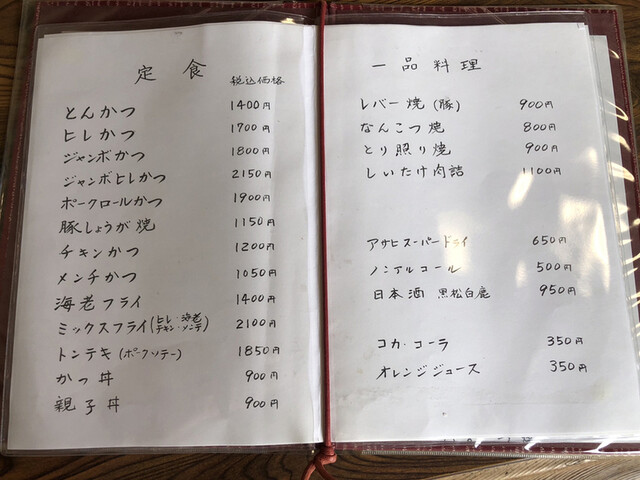 定食 税込価格
とんかつ 1400円
ヒレかつ 1700円
ジャンボかつ 1800円
ジャンボヒレかつ 2150円
ポークロールかつ 1900円
豚しょうが焼 1150円
チキンかつ 1200円
メンチかつ 1050円
海老フライ 1400円
ミックスフライ(ヒレ・海老 チキン・メンチ) 2100円
トンテキ(ポークソテー) 1850円
かつ丼 900円
親子丼 900円
一品料理
レバー焼(豚) 900円
なんこつ焼 800円
とり照り焼 900円
しいたけ肉詰 1100円
アサヒスーパードライ 650円
ノンアルコール 500円
日本酒 黒松白鹿 950円
コカ・コーラ 350円
オレンジジュース 350円